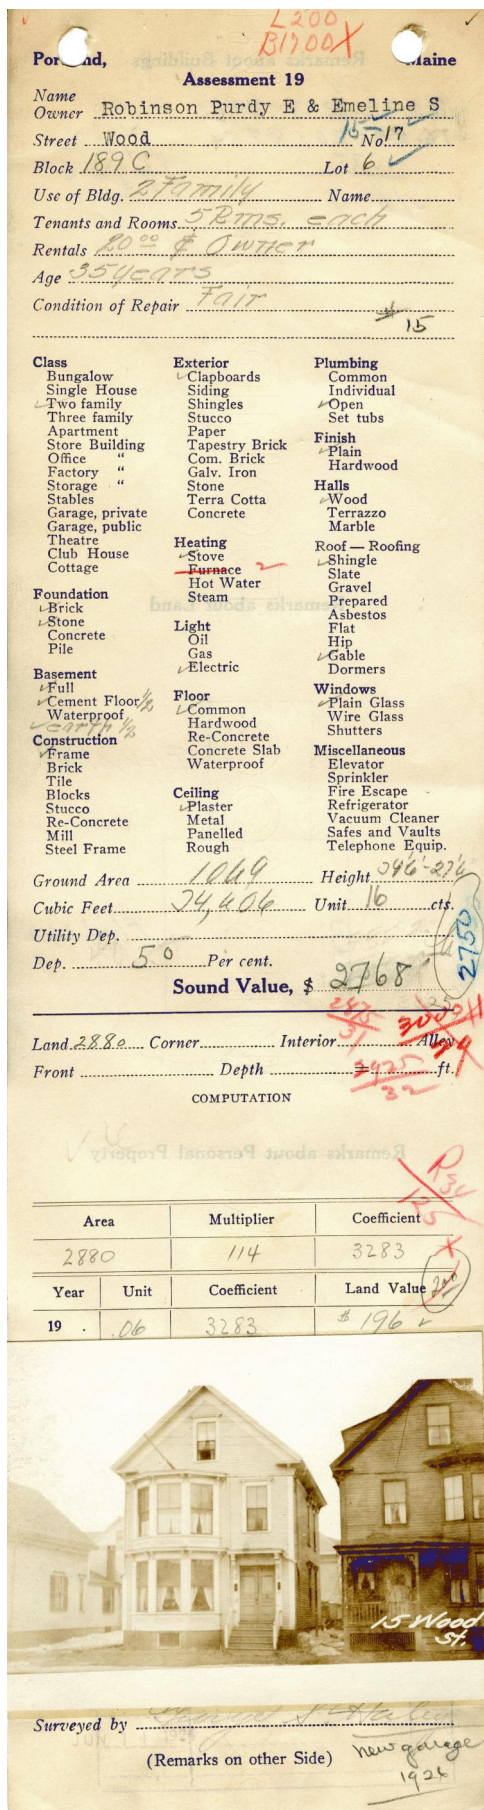 L200
B1700 X
Portland, Maine
Assessment 19
Name
Owner Robinson Purdy E & Emeline S
Street Wood No 15-17
Block 189 C Lot 6
Use of Bldg. 2 Family Name
Tenants and Rooms 5 Rms. each
Rentals 20 00 & Owner
Age 35 years
Condition of Repair Fair
$15
Class
Bungalow
Single House
✓Two family
Three family
Apartment
Store Building
Office "
Factory "
Storage "
Stables
Garage, private
Garage, public
Theatre
Club House
Cottage
Foundation
✓Brick
✓Stone
Concrete
Pile
Basement
✓Full
✓Cement Floor 1/2
Waterproof
✓earth 1/2
Construction
✓Frame
Brick
Tile
Blocks
Stucco
Re-Concrete
Mill
Steel Frame
Exterior
✓Clapboards
Siding
Shingles
Stucco
Paper
Tapestry Brick
Com. Brick
Galv. Iron
Stone
Terra Cotta
Concrete
Heating
✓Stove
Furnace
Hot Water
Steam
Light
Oil
Gas
✓Electric
Floor
✓Common
Hardwood
Re-Concrete
Concrete Slab
Waterproof
Ceiling
✓Plaster
Metal
Panelled
Rough
Plumbing
Common
Individual
✓Open
Set tubs
Finish
✓Plain
Hardwood
Halls
✓Wood
Terrazzo
Marble
Roof — Roofing
✓Shingle
Slate
Gravel
Prepared
Asbestos
Flat
Hip
✓Gable
Dormers
Windows
✓Plain Glass
Wire Glass
Shutters
Miscellaneous
Elevator
Sprinkler
Fire Escape
Refrigerator
Vacuum Cleaner
Safes and Vaults
Telephone Equip.
Ground Area 1069 Height
Cubic Feet Unit 16 cts.
Utility Dep.
2750
Dep. 50 Per cent.
Sound Value, $ 2768
2875
31
3000
Land 2880 Corner Interior Alley
Front Depth ft.
2925
32
COMPUTATION
Area Multiplier Coefficient
2880 114 3283
Year Unit Coefficient Land Value
19 . .06 3283 $ 196
15 Wood
St.
Surveyed by
(Remarks on other Side)
New garage
1926